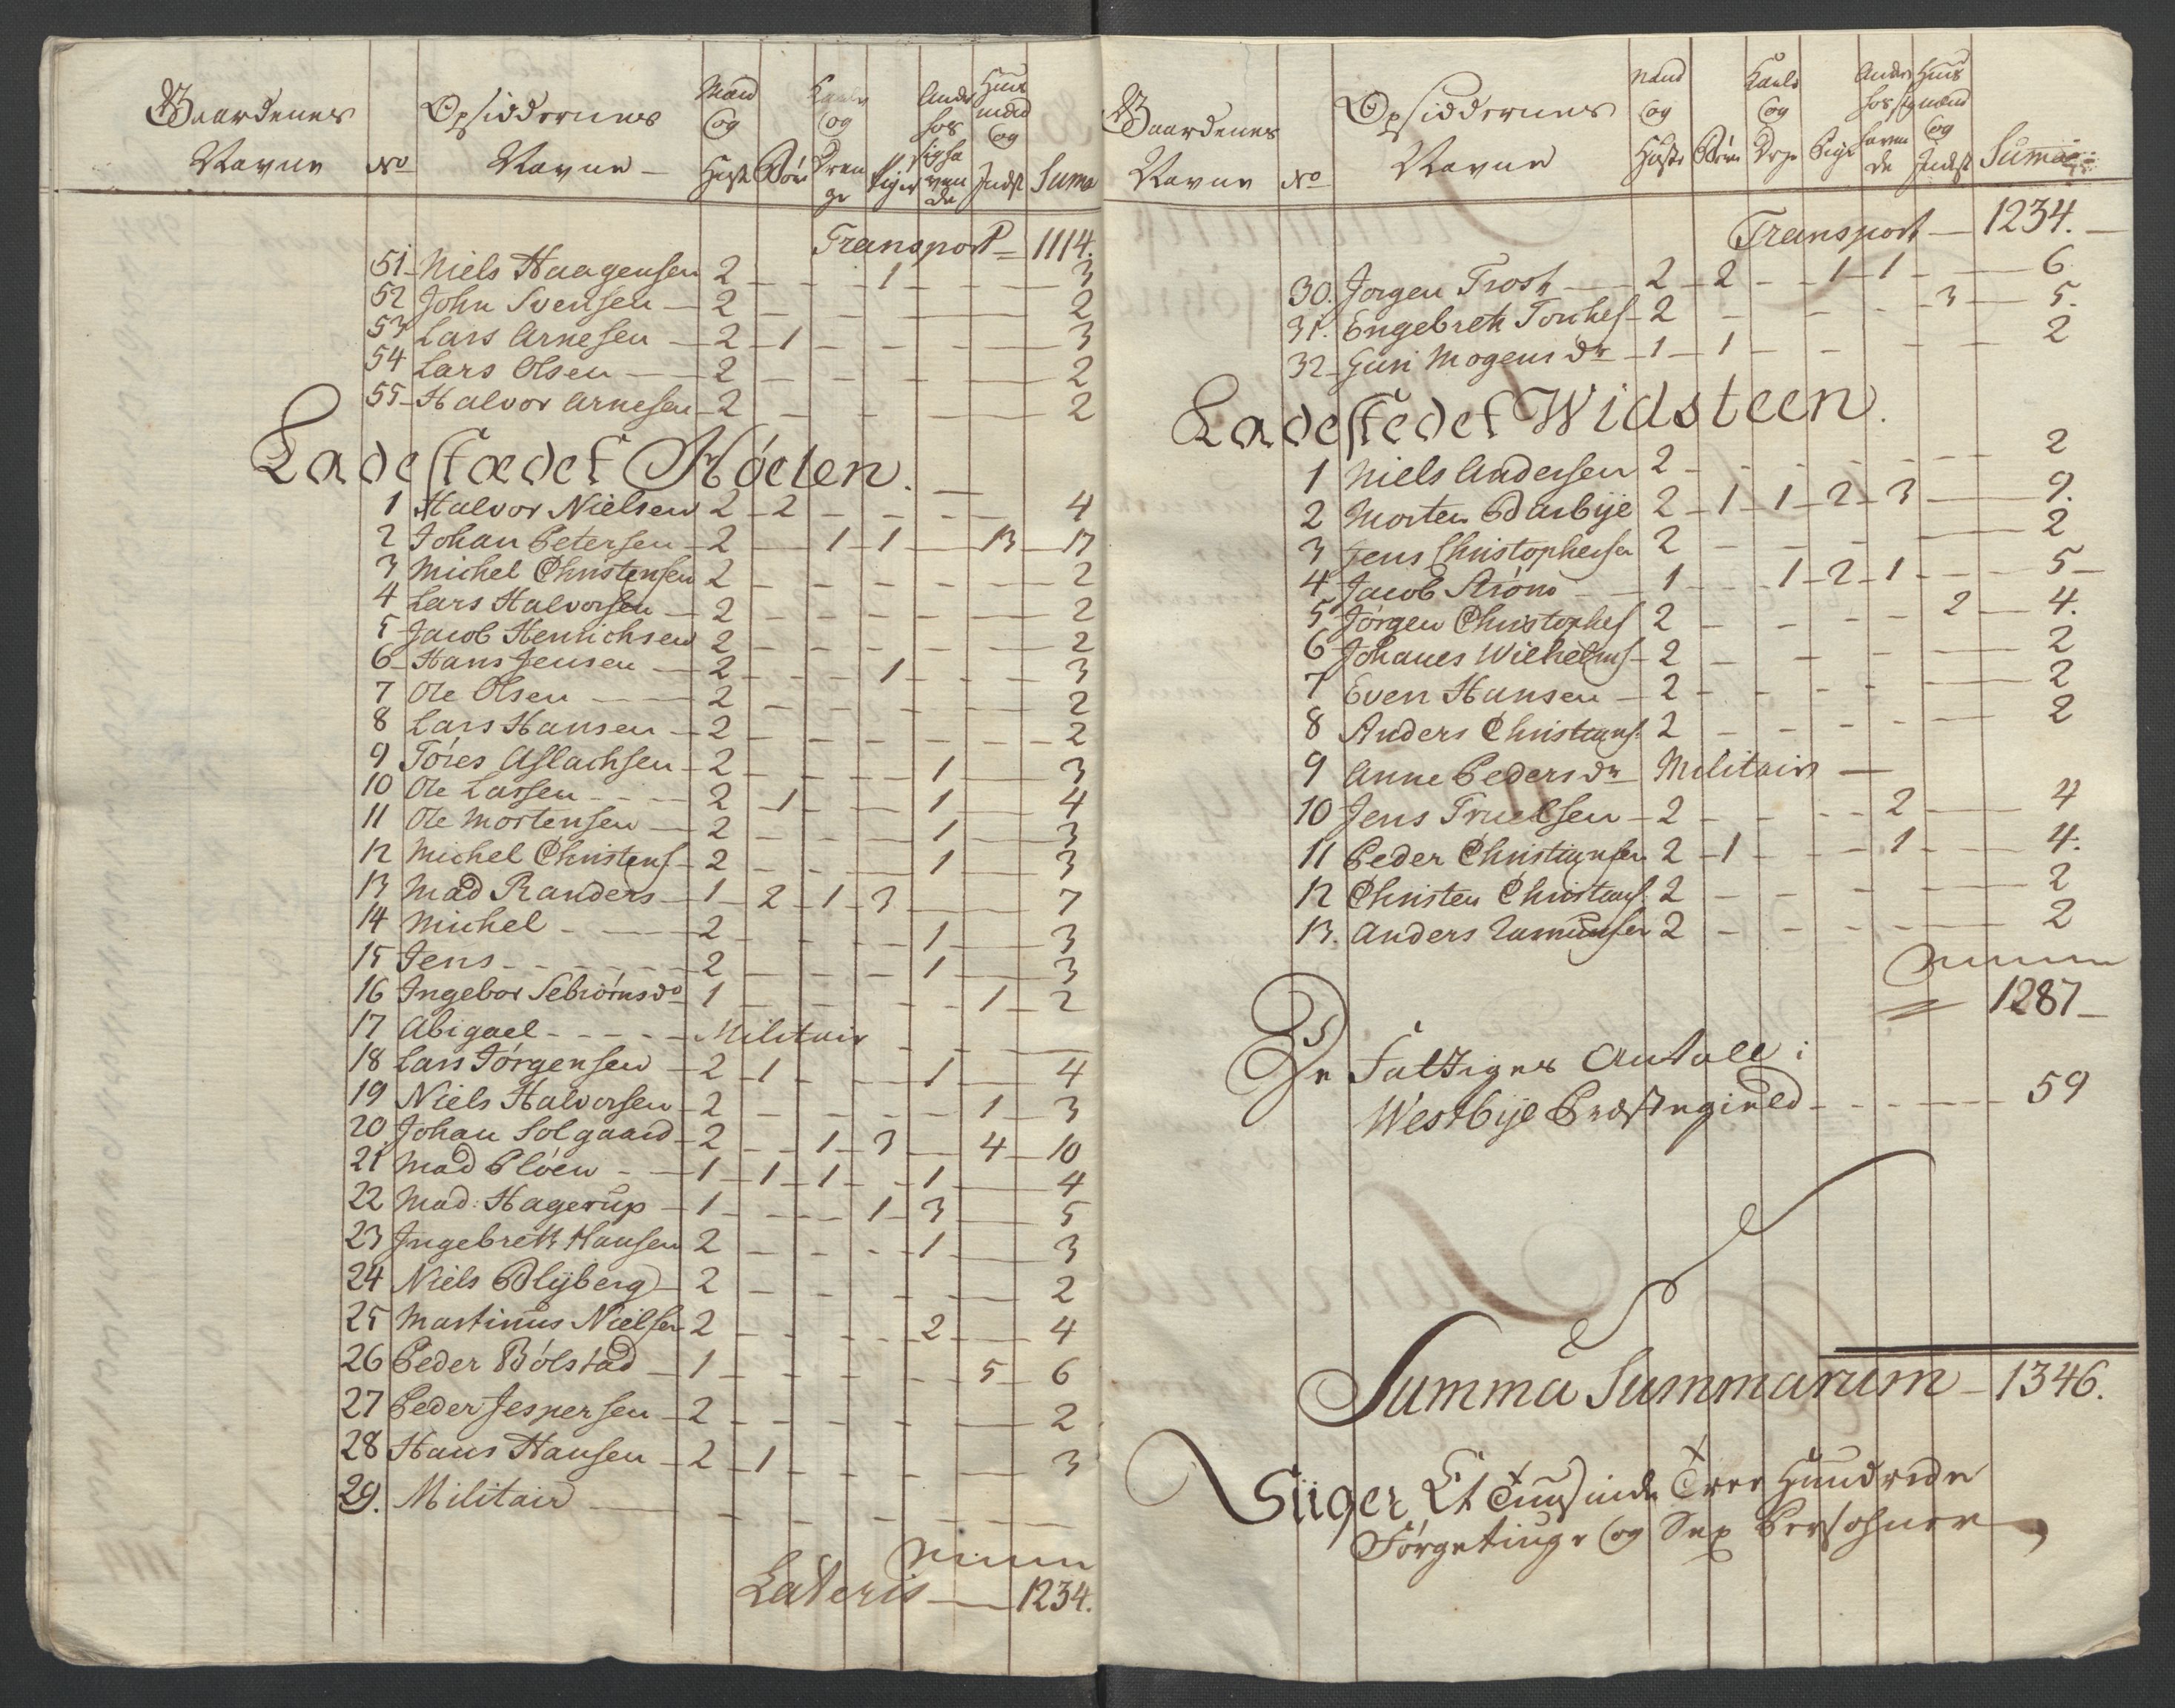 Gaardenes Navne | No | Opsiddernes Navne | Mand og Hust | Börn | Karle og Drenge | Piger | Andre hos sig havende | Huusmænd og Indst | Suma
Transport = 1114.
51 Niels Haagensen 2 – – 1 – – 3
52 John Svensen 2 – – – – 2
53 Lars Arnesen 2 1 – – – 3
54 Lars Olsen 2 – – – – 2
55 Halvor Arnesen 2 – – – – 2
Ladestædet Hóelen.
1 Halvor Nielsen 2 2 – – – – 4
2 Johan Petersen 2 – 1 1 – 13 17
3 Michel Christensen 2 – – – – – 2
4 Lars Halvorsen 2 – – – – – 2
5 Jacob Henrichsen 2 – – – – – 2
6 Hans Jensen 2 – – 1 – – 3
7 Ole Olsen 2 – – – – – 2
8 Lars Hansen 2 – – – – – 2
9 Tóres Aslachsen 2 – – – 1 – 3
10 Ole Larsen 2 1 – – 1 – 4
11 Ole Mortensen 2 – – – 1 – 3
12 Michel Christens 2 – – – 1 – 3
13 Mad Randers 1 2 1 3 – – 7
14 Michel 2 – – – 1 – 3
15 Jens 2 – – – 1 – 3
16 Ingebor Sebiórns do 1 – – – – 1 2
17 Abigael Militair – – –
18 Lars Jórgensen 2 1 – – 1 – 4
19 Niels Halvorsen 2 – – – – 1 3
20 Johan Solgaard 2 – 1 3 – 4 10
21 Mad Plóen 1 1 1 – 1 – 4
22 Mad: Hagerup 1 – – 1 3 – 5
23 Ingebrett Hansen 2 – – – 1 – 3
24 Niels Blyberg 2 – – – – – 2
25 Martinus Nielsen 2 – – – 2 – 4
26 Peder Bólstad 1 – – – – 5 6
27 Peder Jespersen 2 – – – – – 2
28 Hans Hansen 2 1 – – – – 3
29. Militair – – – – – –
Lateris 1234.
Gaardenes Navne | No | Opsiddernes Navne | Mand og Hustr | Börn | Karle og Drge | Pige | Andre hos sig havende | Huusmænd og Indst | Suma
Transport – 1234.
30. Jorgen Trosk 2 2 – 1 1 – 6
31. Engebrett Torchels 2 – – – – 3 5.
32 Guri Mogens dr 1 1 – – – – 2
Ladestedet Widsteen.
1 Niels Andersen 2 – – – – – 2
2 Morten Barbye 2 1 1 2 3 – 9.
3 Jens Christophersen 2 – – – – – 2
4 Jacob Stróm 1 – 1 2 1 – 5
5 Jórgen Christophes 2 – – – – 2 4.
6 Johanes Wilhelms 2 – – – – – 2
7 Even Hansen 2 – – – – – 2
8 Anders Christians 2 – – – – – 2
9 Anne Peders dr Militair –
10 Jens Truelsen 2 – – – 2 – 4
11 Peder Christiansen 2 1 – – 1 – 4.
12 Christen Christians 2 – – – – – 2
13. Anders Rasmunsen 2 – – – – – 2
= 1287
De Fattiges Antall i
Westbye Præstegield – – – 59
Summa Summarum – 1346.
Siiger Et Tuusinde Tree Hundrede
Förgetiuge og Sex Persohner